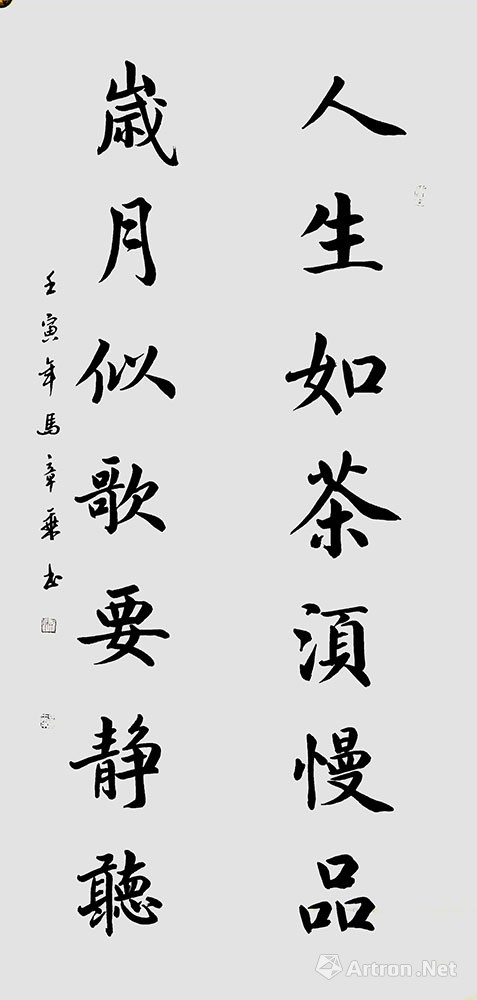 人生如茶須慢品
歲月似歌要静聽
壬寅年馬章乘书
Artron.Net